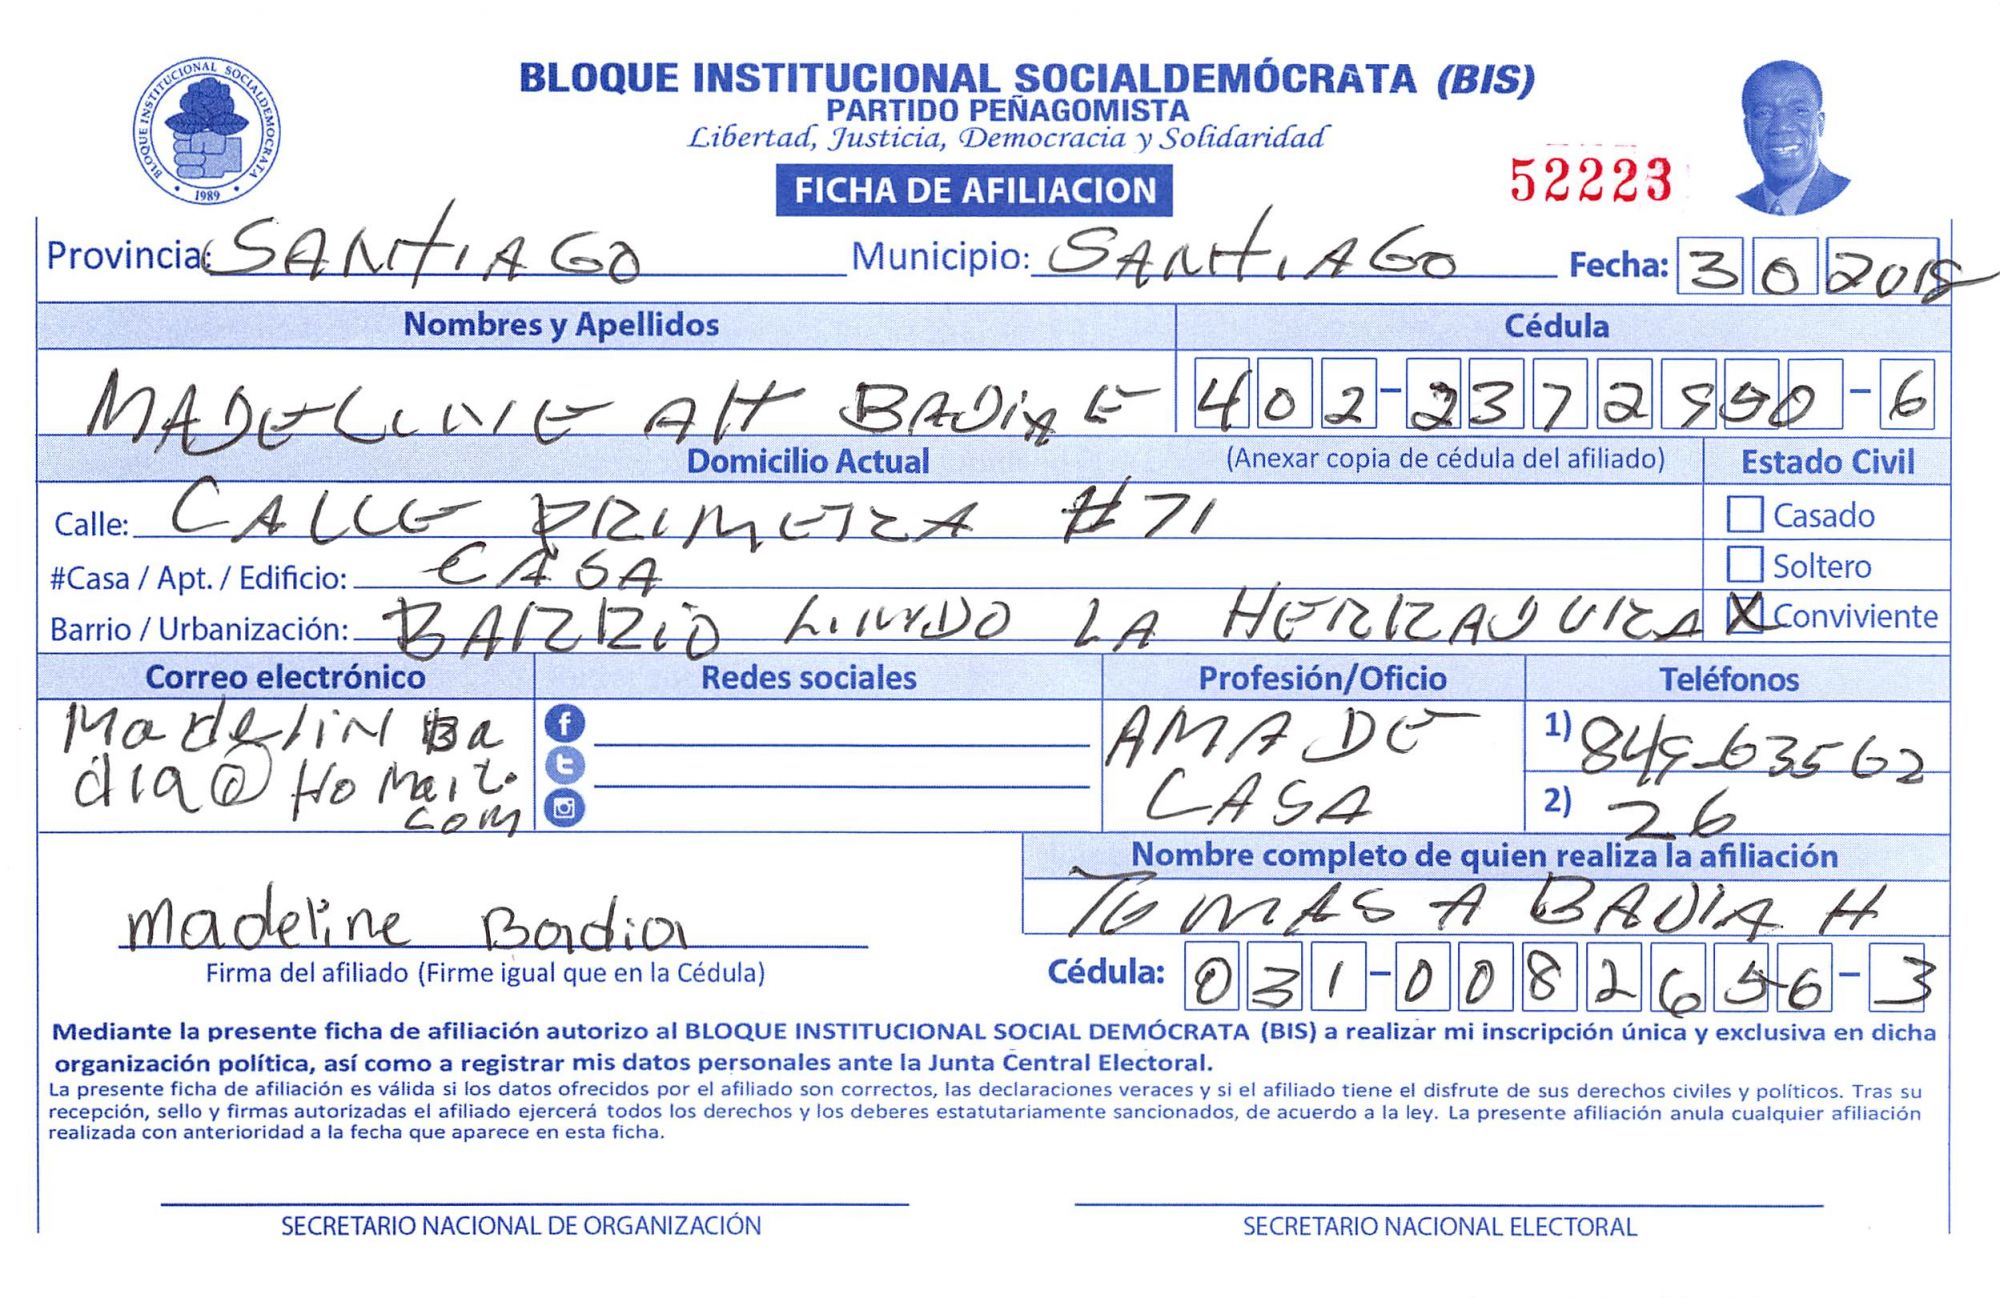 BLOQUE INSTITUCIONAL SOCIALDEMÓCRATA (BIS)
PARTIDO PEÑAGOMISTA
Libertad, Justicia, Democracia y Solidaridad
BLOQUE INSTITUCIONAL SOCIALDEMOCRATA
• 1989 •
FICHA DE AFILIACION
52223
Provincia: SANTIAGO Municipio: SANTIAGO Fecha: 3 0 2018
Nombres y Apellidos Cédula
MADELINE AH 402-2372950-6
Domicilio Actual (Anexar copia de cédula del afiliado) Estado Civil
Calle: CALLE PRIMERA #71 Casado
#Casa / Apt. / Edificio: CASA Soltero
Barrio / Urbanización: BARRIO LINDO LA HERRADURA X Conviviente
Correo electrónico Redes sociales Profesión/Oficio Teléfonos
MadeliN Ba AMA DE 1) 849-63562
dia@HoMail. CASA 2) 26
com
Nombre completo de quien realiza la afiliación
TOMAS A BADIA H
Madeline Badia
Firma del afiliado (Firme igual que en la Cédula) Cédula: 031-0082656-3
Mediante la presente ficha de afiliación autorizo al BLOQUE INSTITUCIONAL SOCIAL DEMÓCRATA (BIS) a realizar mi inscripción única y exclusiva en dicha
organización política, así como a registrar mis datos personales ante la Junta Central Electoral.
La presente ficha de afiliación es válida si los datos ofrecidos por el afiliado son correctos, las declaraciones veraces y si el afiliado tiene el disfrute de sus derechos civiles y políticos. Tras su
recepción, sello y firmas autorizadas el afiliado ejercerá todos los derechos y los deberes estatutariamente sancionados, de acuerdo a la ley. La presente afiliación anula cualquier afiliación
realizada con anterioridad a la fecha que aparece en esta ficha.
SECRETARIO NACIONAL DE ORGANIZACIÓN SECRETARIO NACIONAL ELECTORAL